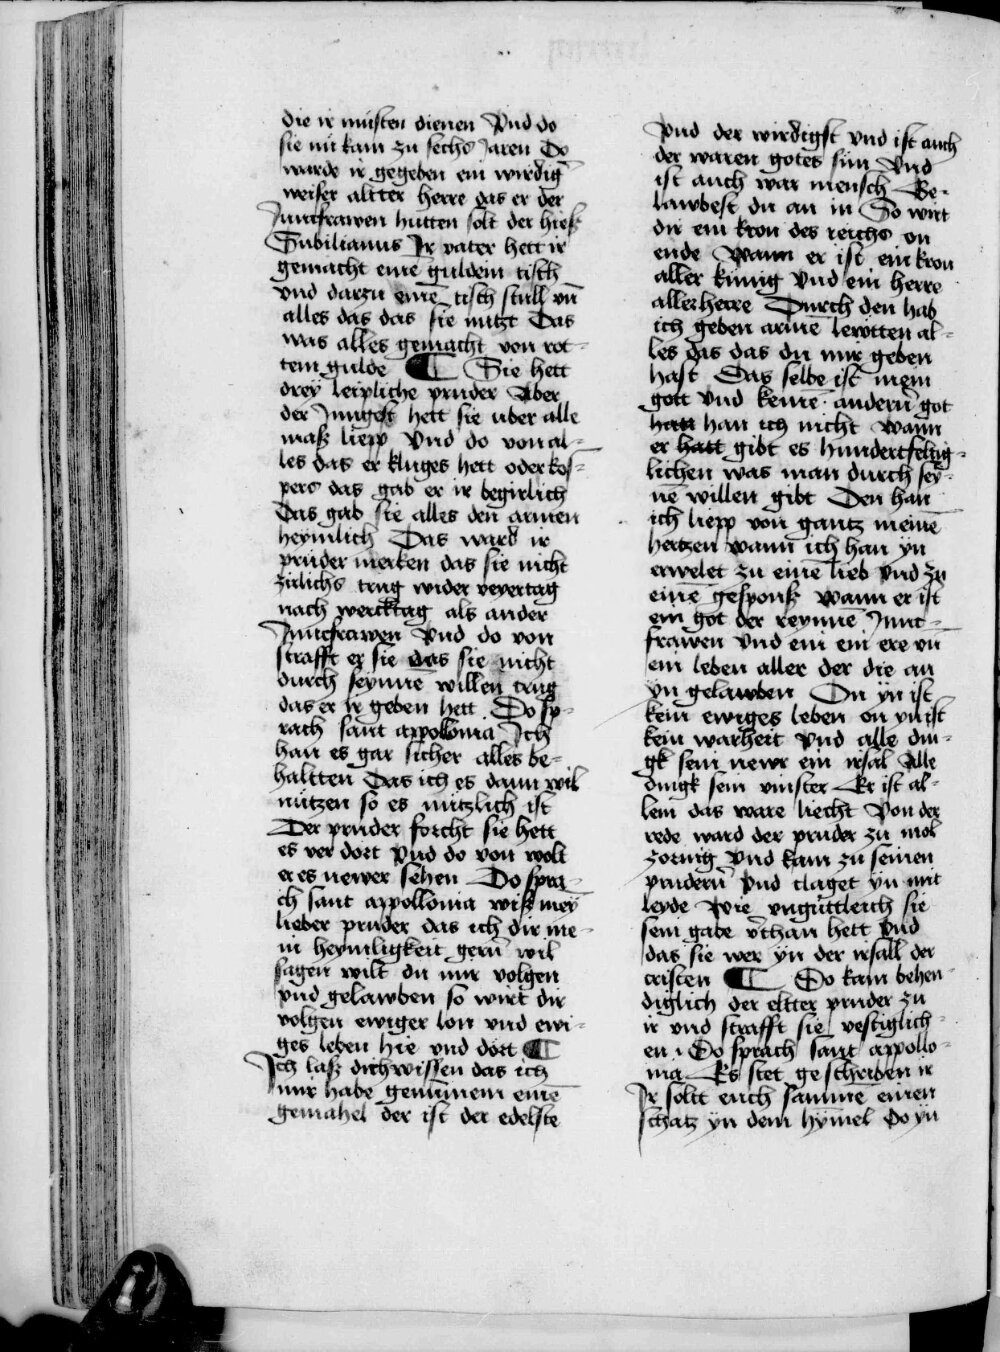 die ir musten dienen Vnd do
sie nū kam zu sechs Jaren Do
wurde ir gegeben ein wirdig
weiser altter herre das er der
Junckfrawen hutten solt der hieß
Subilianus Ir vater hett ir
gemacht einē guldein tisch
vnd darzu einē tisch stull vn̄
alles das das sie nutzt Das
was alles gemacht von rot-
tem gulde ¶ Sie hett
drey leipliche pruder Aber
der Jungest hett sie uber alle
maß liepp Vnd do von al-
les das er kluges hett oder kos-
pers das gab er ir begirlich
Das gab sie alles den armen
heymlich Das ward ir
pruder merken das sie nicht
zirlichs trug wider veyertag
nach wercktag als ander
Junckfrawen Vnd do von
strafft er sie das sie nicht
durch seynnē willen trug
das er ir geben hett Do sp-
rach sant appollonia Ich
han es gar sicher alles be-
haltten Das ich es dann wil
nützen so es nutzlich ist
Der pruder forcht sie hett
es ver dort Vnd do von wolt
er es newer sehen Do spra-
ch sant appollonia wiß mey
lieber pruder das ich dir me-
in heymligkeit gern̄ wil
sagen wilt du mir volgen
vnd gelawben so wirt dir
volgen ewiger lon vnd ewi-
ges leben hie vnd dort ¶
Ich laß dich wissen das ich
mir habe genūmem einē
gemahel der ist der edelste
Vnd der wirdigst vnd ist auch
der waren gotes sun Vnd
ist auch war mensch Ge-
lawbest du an in So wirt
dir ein kron des reichs on
ende Wann er ist ein kron
aller kunig Vnd ein herre
aller herre Durch den hab
ich geben armē lewtten al-
les das das du mir geben
hast Das selbe ist mein
gott Vnd keinē andern̄ got
hatt han ich nicht Wann
er hatt gibt es hundertfeltig-
lichen was man durch sey-
nē willen gibt Den han
ich liepp von gantz meinē
hertzen wann ich han yn
erwelet zu einē lieb Vnd zu
einē gesponß Wann er ist
ein got der reynnē Junc-
frawen Vnd ein ein ere vn̄
ein leben aller der die an
yn gelawben On yn ist
kein ewiges leben on yn ist
kein warheit Vnd alle din-
gk sein newr ein irsal Alle
dingk sein vinster Er ist al-
lein das ware liecht Von der
rede ward der pruder zu mol
zornig Vnd kam zu seinen
prudern̄ Vnd claget yn mit
leyde Wie vngüttleich sie
sein gabe v'than hett Vnd
das sie wer yn der irsall der
cristen ¶ Do kam behen-
diglich der eltter pruder zu
ir vnd strafft sie vestiglich-
en . Do sprach sant appollo-
nia Es stet geschriben ir
Ir solt euch sammē einen
schatz yn dem hymel Do yn